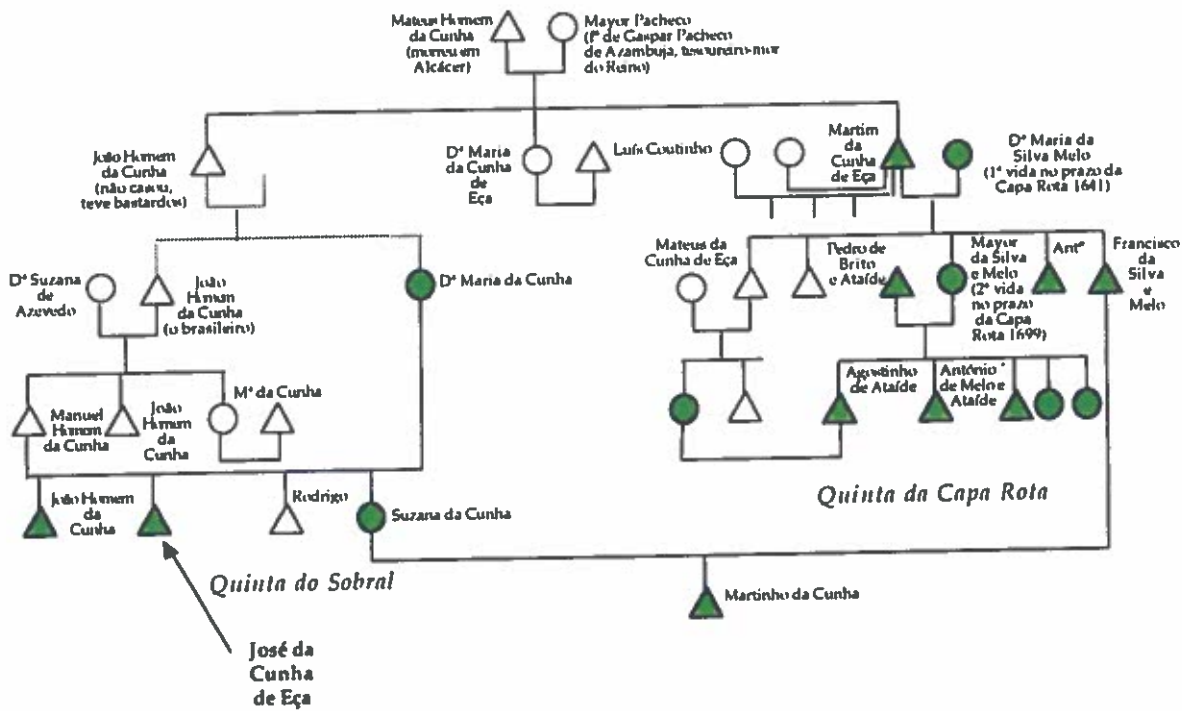 Mateus Homem
da Cunha
(morreu em
Alcácer)
Mayor Pacheco
(fª de Gaspar Pacheco
de Azambuja, tesoureiro-mor
do Reino)
João Homem
da Cunha
(não casou,
teve bastardos)
Dª Maria
da Cunha
de
Eça
Luís Coutinho
Martim
da
Cunha
de Eça
Dª Maria da
Silva Melo
(1ª vida no prazo da
Capa Rota 1641)
Dª Suzana
de
Azevedo
João
Homem
da Cunha
(o brasileiro)
Dª Maria da Cunha
Mateus da
Cunha de Eça
Pedro de
Brito
e Ataíde
Mayor
da Silva
e Melo
(2ª vida
no prazo
da Capa
Rota 1699)
Antº
Francisco
da
Silva
e
Melo
Manuel
Homem
da Cunha
João
Homem
da
Cunha
Mª da Cunha
Agostinho
de Ataíde
António
de Melo e
Ataíde
João Homem
da
Cunha
Rodrigo
Suzana da Cunha
Quinta da Capa Rota
Quinta do Sobral
Martinho da Cunha
José da
Cunha
de Eça